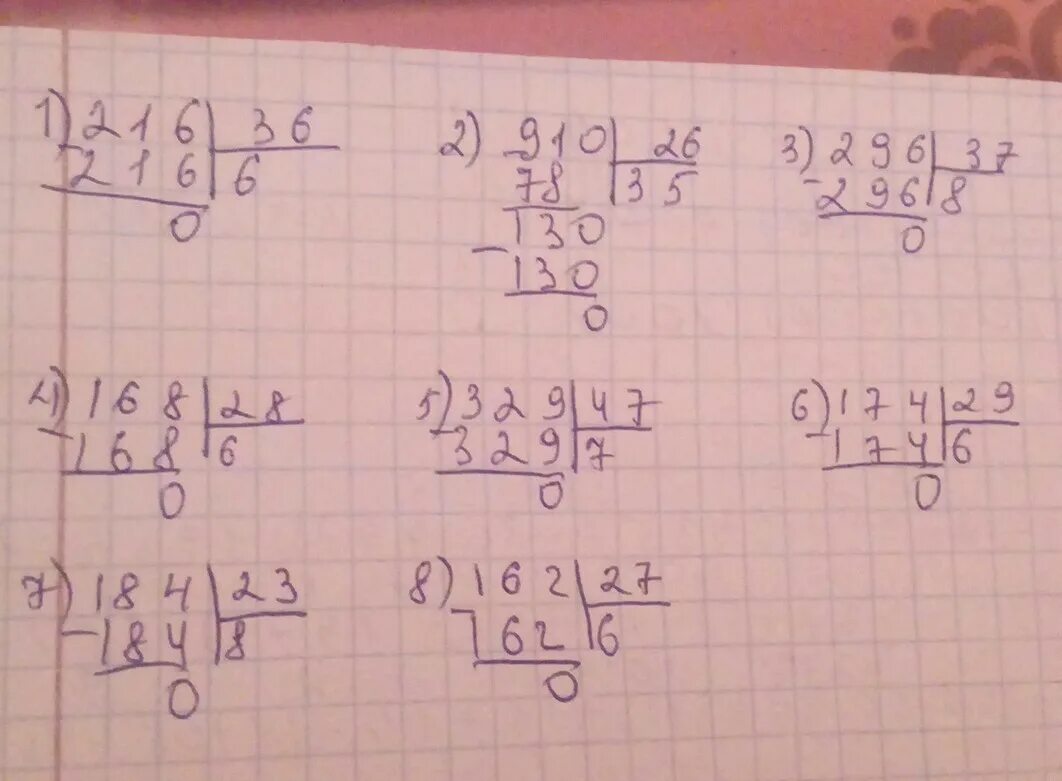 1) 216 | 36
- 216 | 6
0
2) 910 | 26
78 | 35
130
- 130
0
3) 296 | 37
- 296 | 8
0
4) 168 | 28
- 168 | 6
0
5) 329 | 47
- 329 | 7
0
6) 174 | 29
- 174 | 6
0
7) 184 | 23
- 184 | 8
0
8) 162 | 27
- 162 | 6
0